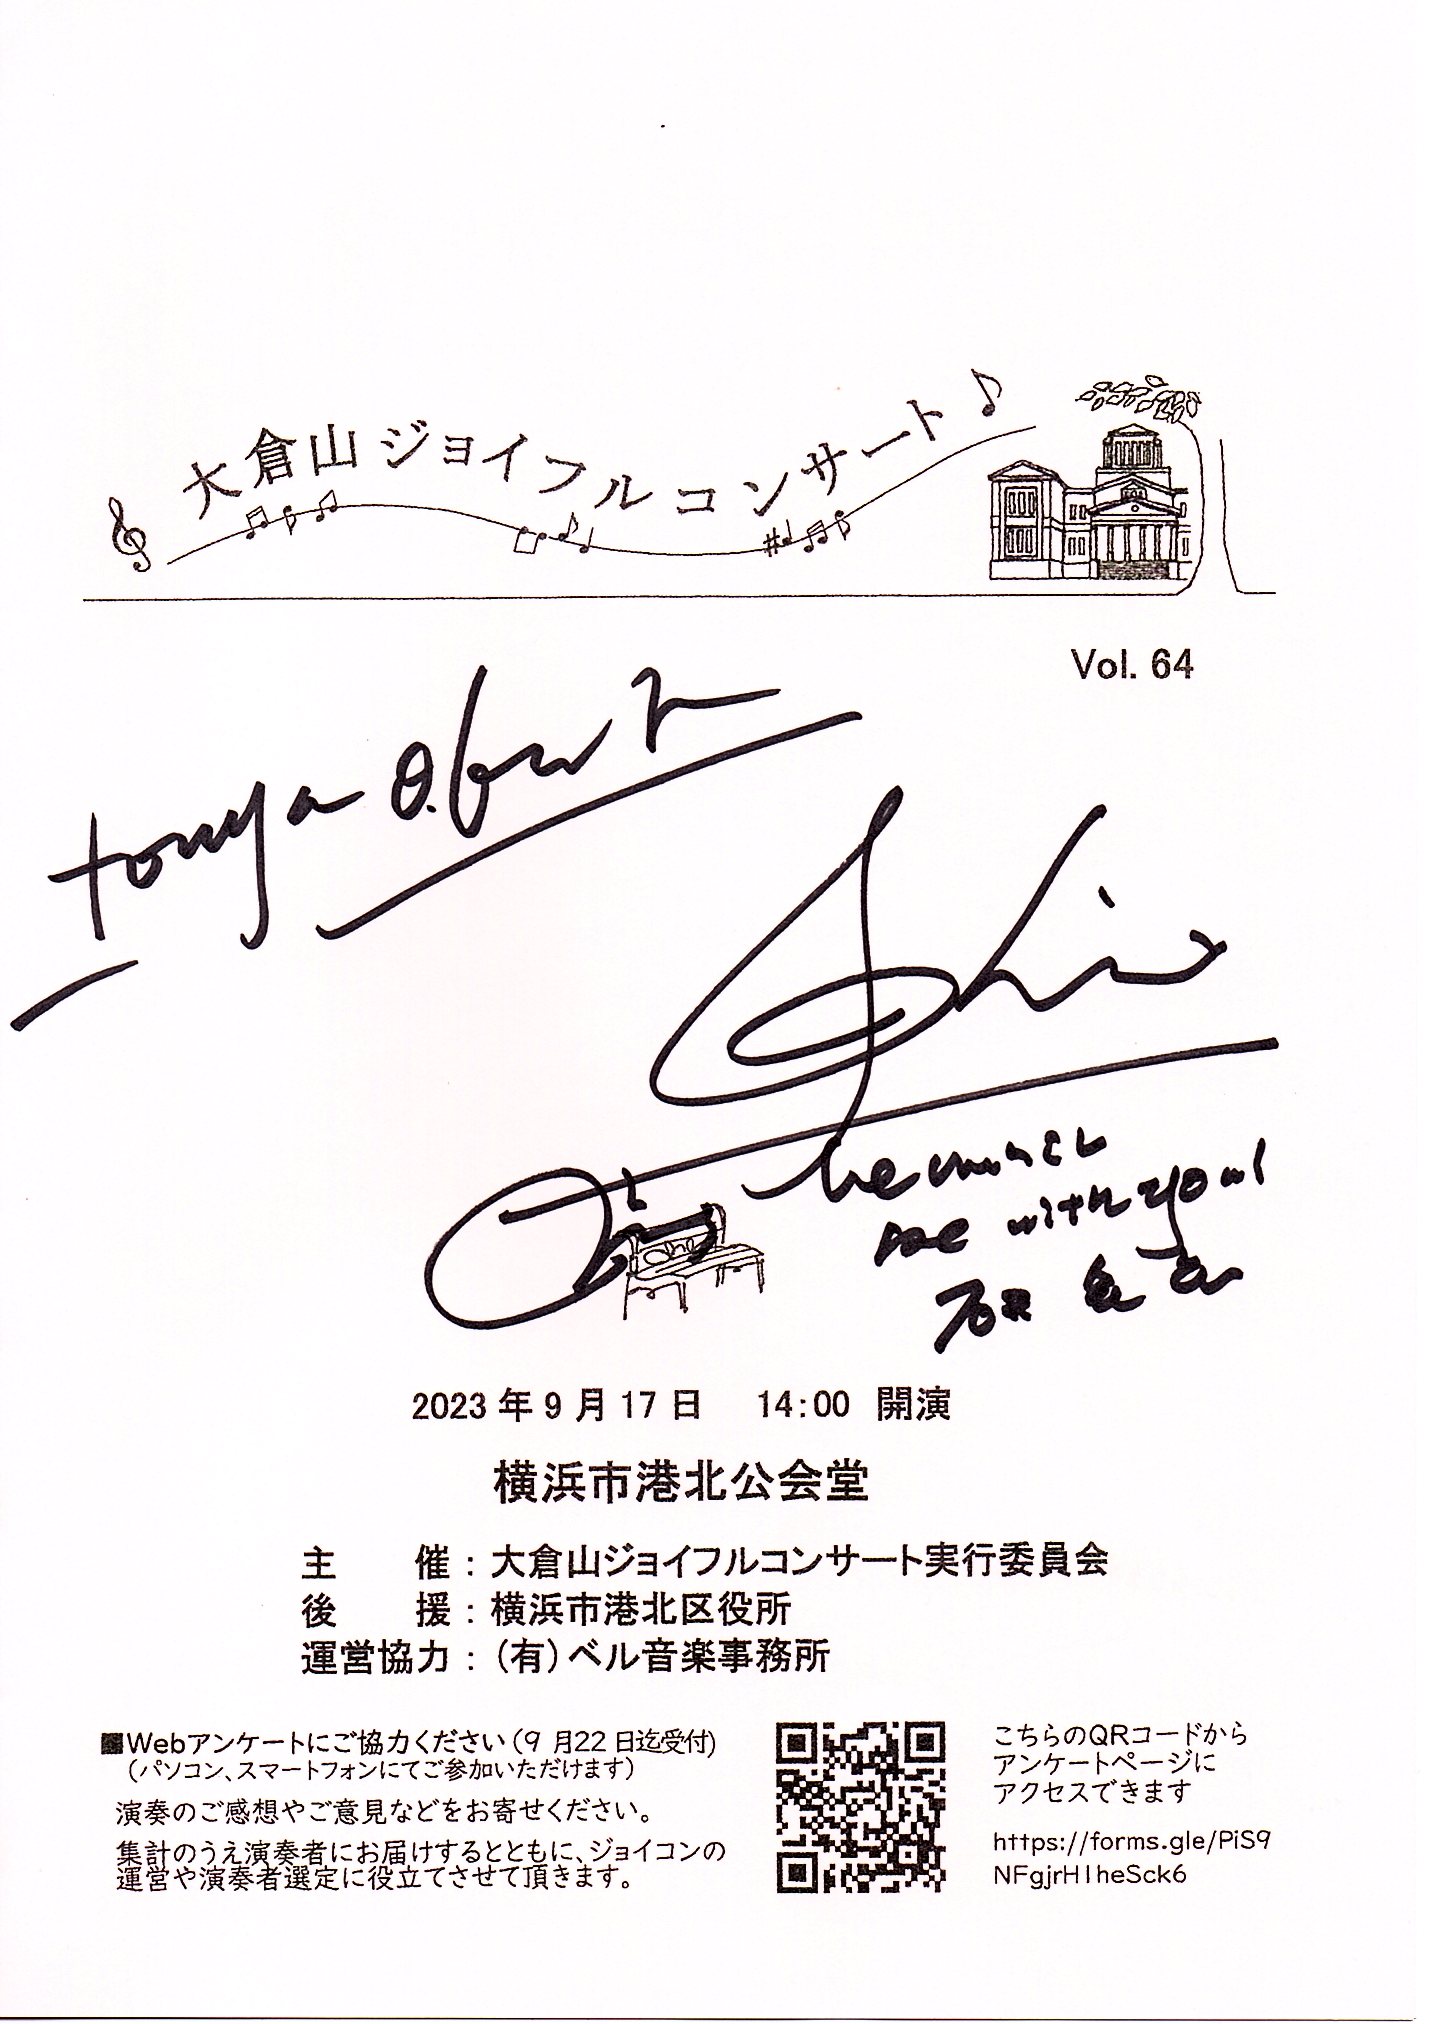 大倉山ジョイフルコンサート
Vol. 64
tonya O.
be with you!
2023年9月17日 14:00 開演
横浜市港北公会堂
主 催：大倉山ジョイフルコンサート実行委員会
後 援：横浜市港北区役所
運営協力：(有)ベル音楽事務所
■Webアンケートにご協力ください(9月22日迄受付)
(パソコン、スマートフォンにてご参加いただけます)
演奏のご感想やご意見などをお寄せください。
集計のうえ演奏者にお届けするとともに、ジョイコンの
運営や演奏者選定に役立てさせて頂きます。
こちらのQRコードから
アンケートページに
アクセスできます
https://forms.gle/PiS9
NFgjrH1heSck6